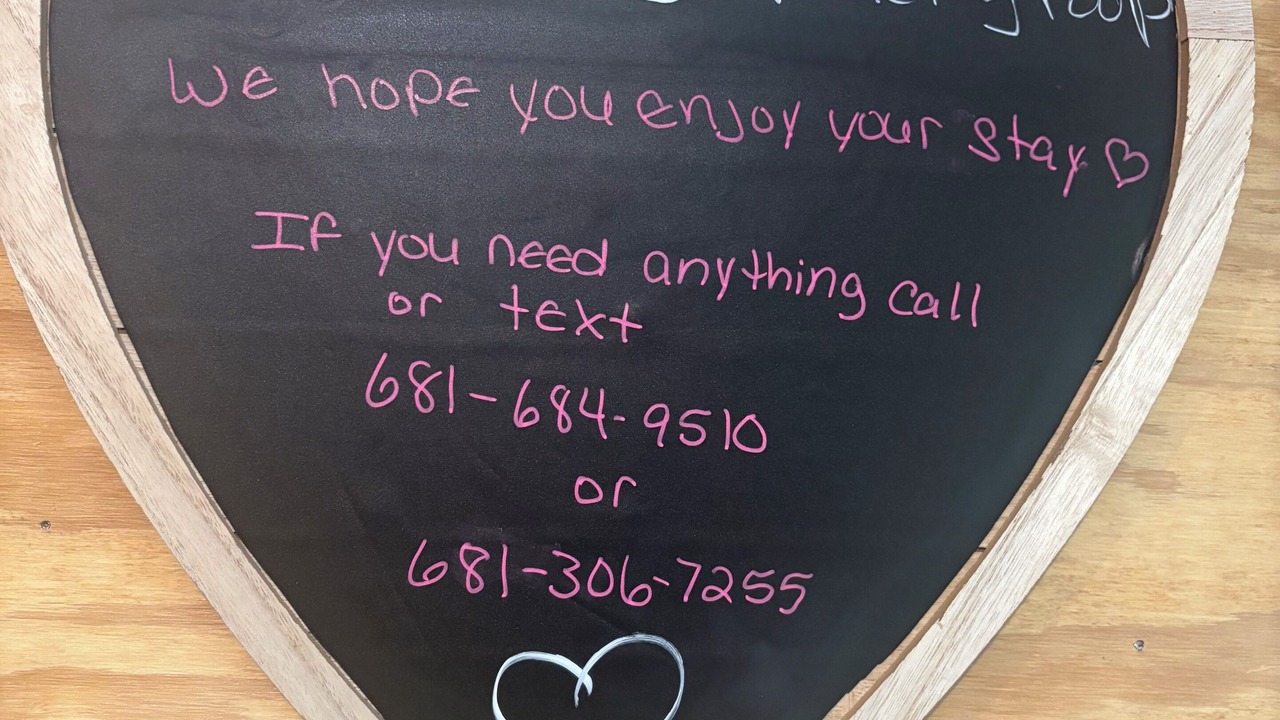 We hope you enjoy your stay ♡
If you need anything call
or text
681-684-9510
or
681-306-7255